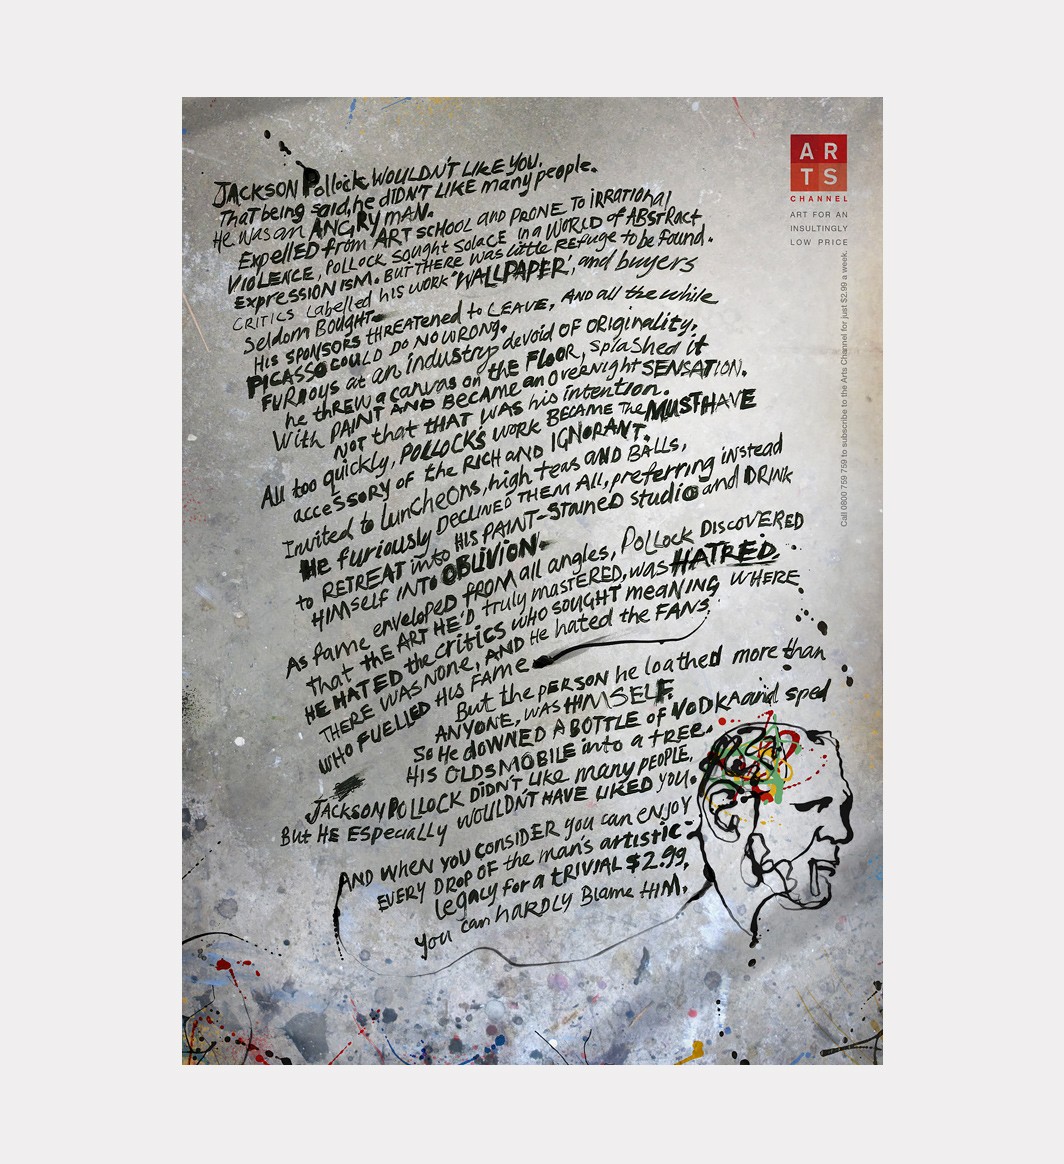 JACKSON Pollock WOULDN'T LIKE YOU.
That being said, he DIDN'T LIKE many people.
He was an ANGRY MAN.
Expelled from ART SCHOOL and PRONE To iRRATIONal
VIOLENCE, POLLOCK Sought Solace in a WORLD of ABSTRact
EXPRESSIONISM. BUT THERE was little REFUGE to be Found.
CRITICS Labelled his WORK 'WALLPAPER', and buyers
Seldom Bought.
His SPONSORS THREATENED to LEAVE, AND all the while
PICASSO COULD DO NO WRONG.
FURIOUS at an industry devoid OF ORiginality,
he threw a canvas on the FLOOR, splashed it
With PAINT AND BECAME an Overnight SENSATION.
NOT that THAT WAS his intention.
All too quickly, POLLOCK'S work BECAME The MUST HAVE
accessory of the RICH and IGNORANT.
Invited to Luncheons, high teas and BALLS,
He furiously DECLINED THEM All, preferring instead
to RETREAT into HIS PAINT-Stained studio and DRINK
HIMSELF INTO OBLIVION.
As fame enveloped FROM all angles, Pollock DISCOVERED
that the ART HE'D truly mastered, was HATRED.
HE HATED the critics who sought meaNING WHERE
THERE WAS NONE, AND He hated the FANS
WHO FUELLED HIS FAME
But the PERSON he loathed more than
ANYONE, was HIMSELF.
So He downed A BOTTLE of VODKA and sped
HIS OLDSMOBILE into a TREE.
JACKSON POLLOCK DIDN'T LIKE many PEOPLE,
But HE ESPecially WOULDN'T HAVE LIKED YOU.
AND WHEN YOU CONSIDER you can enjoy
EVERY DROP OF the man's artistic
legacy for a TRIVIAL $2.99,
you can hARDLY Blame HIM.
AR
TS
CHANNEL
ART FOR AN
INSULTINGLY
LOW PRICE
Call 0800 759 759 to subscribe to the Arts Channel for just $2.99 a week.